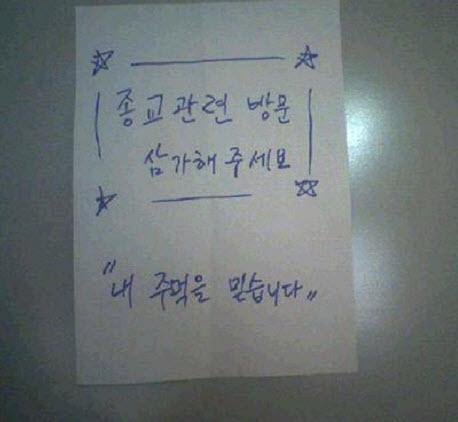 종교관련 방문
삼가해주세요
"내 주먹을 믿습니다"